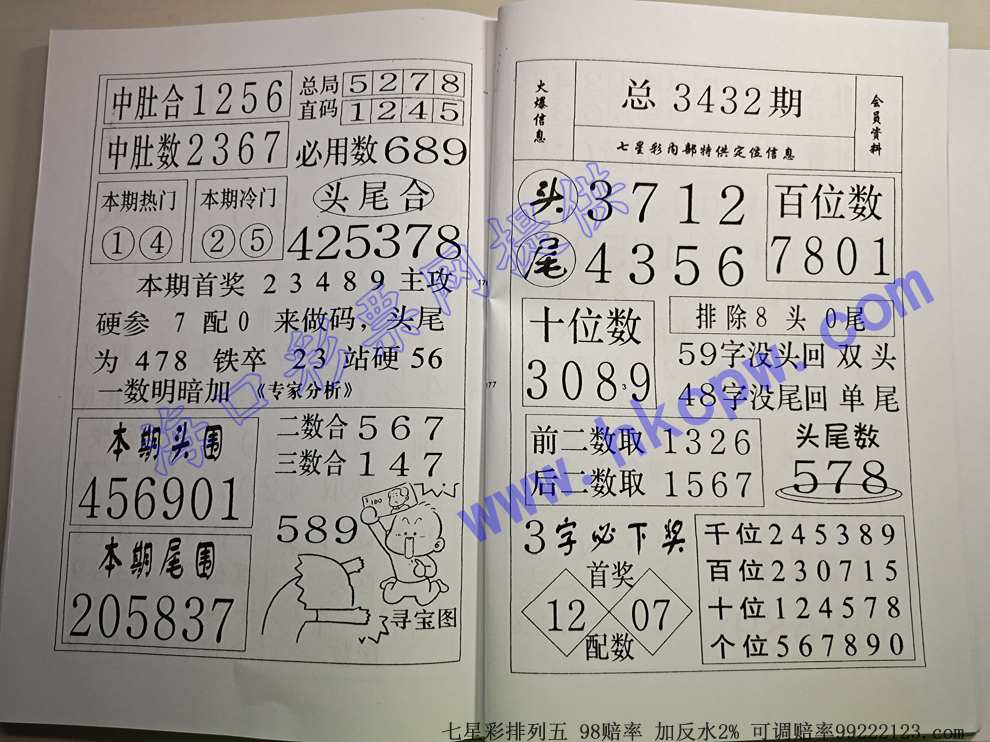 中肚合1256
总局5278
直码1245
中肚数2367
必用数689
本期热门
①④
本期冷门
②⑤
头尾合
425378
本期首奖 23489 主攻
硬参 7 配0 来做码，头尾
为 478 铁卒 23 站硬 56
一数明暗加 《专家分析》
本期头围
456901
本期尾围
205837
二数合 567
三数合 147
589
$100
寻宝图
火爆信息
总 3432期
会员资料
七星彩内部特供定位信息
头 3712
尾 4356
百位数
7801
十位数
3089
排除8头 0尾
59字没头回 双头
48字没尾回 单尾
前二数取 1326
后二数取 1567
头尾数
578
3字必下奖
首奖
12 07
配数
千位245389
百位230715
十位124578
个位567890
177
海口彩票网提供
www.hkcpw.com
七星彩排列五 98赔率 加反水2% 可调赔率99222123.com